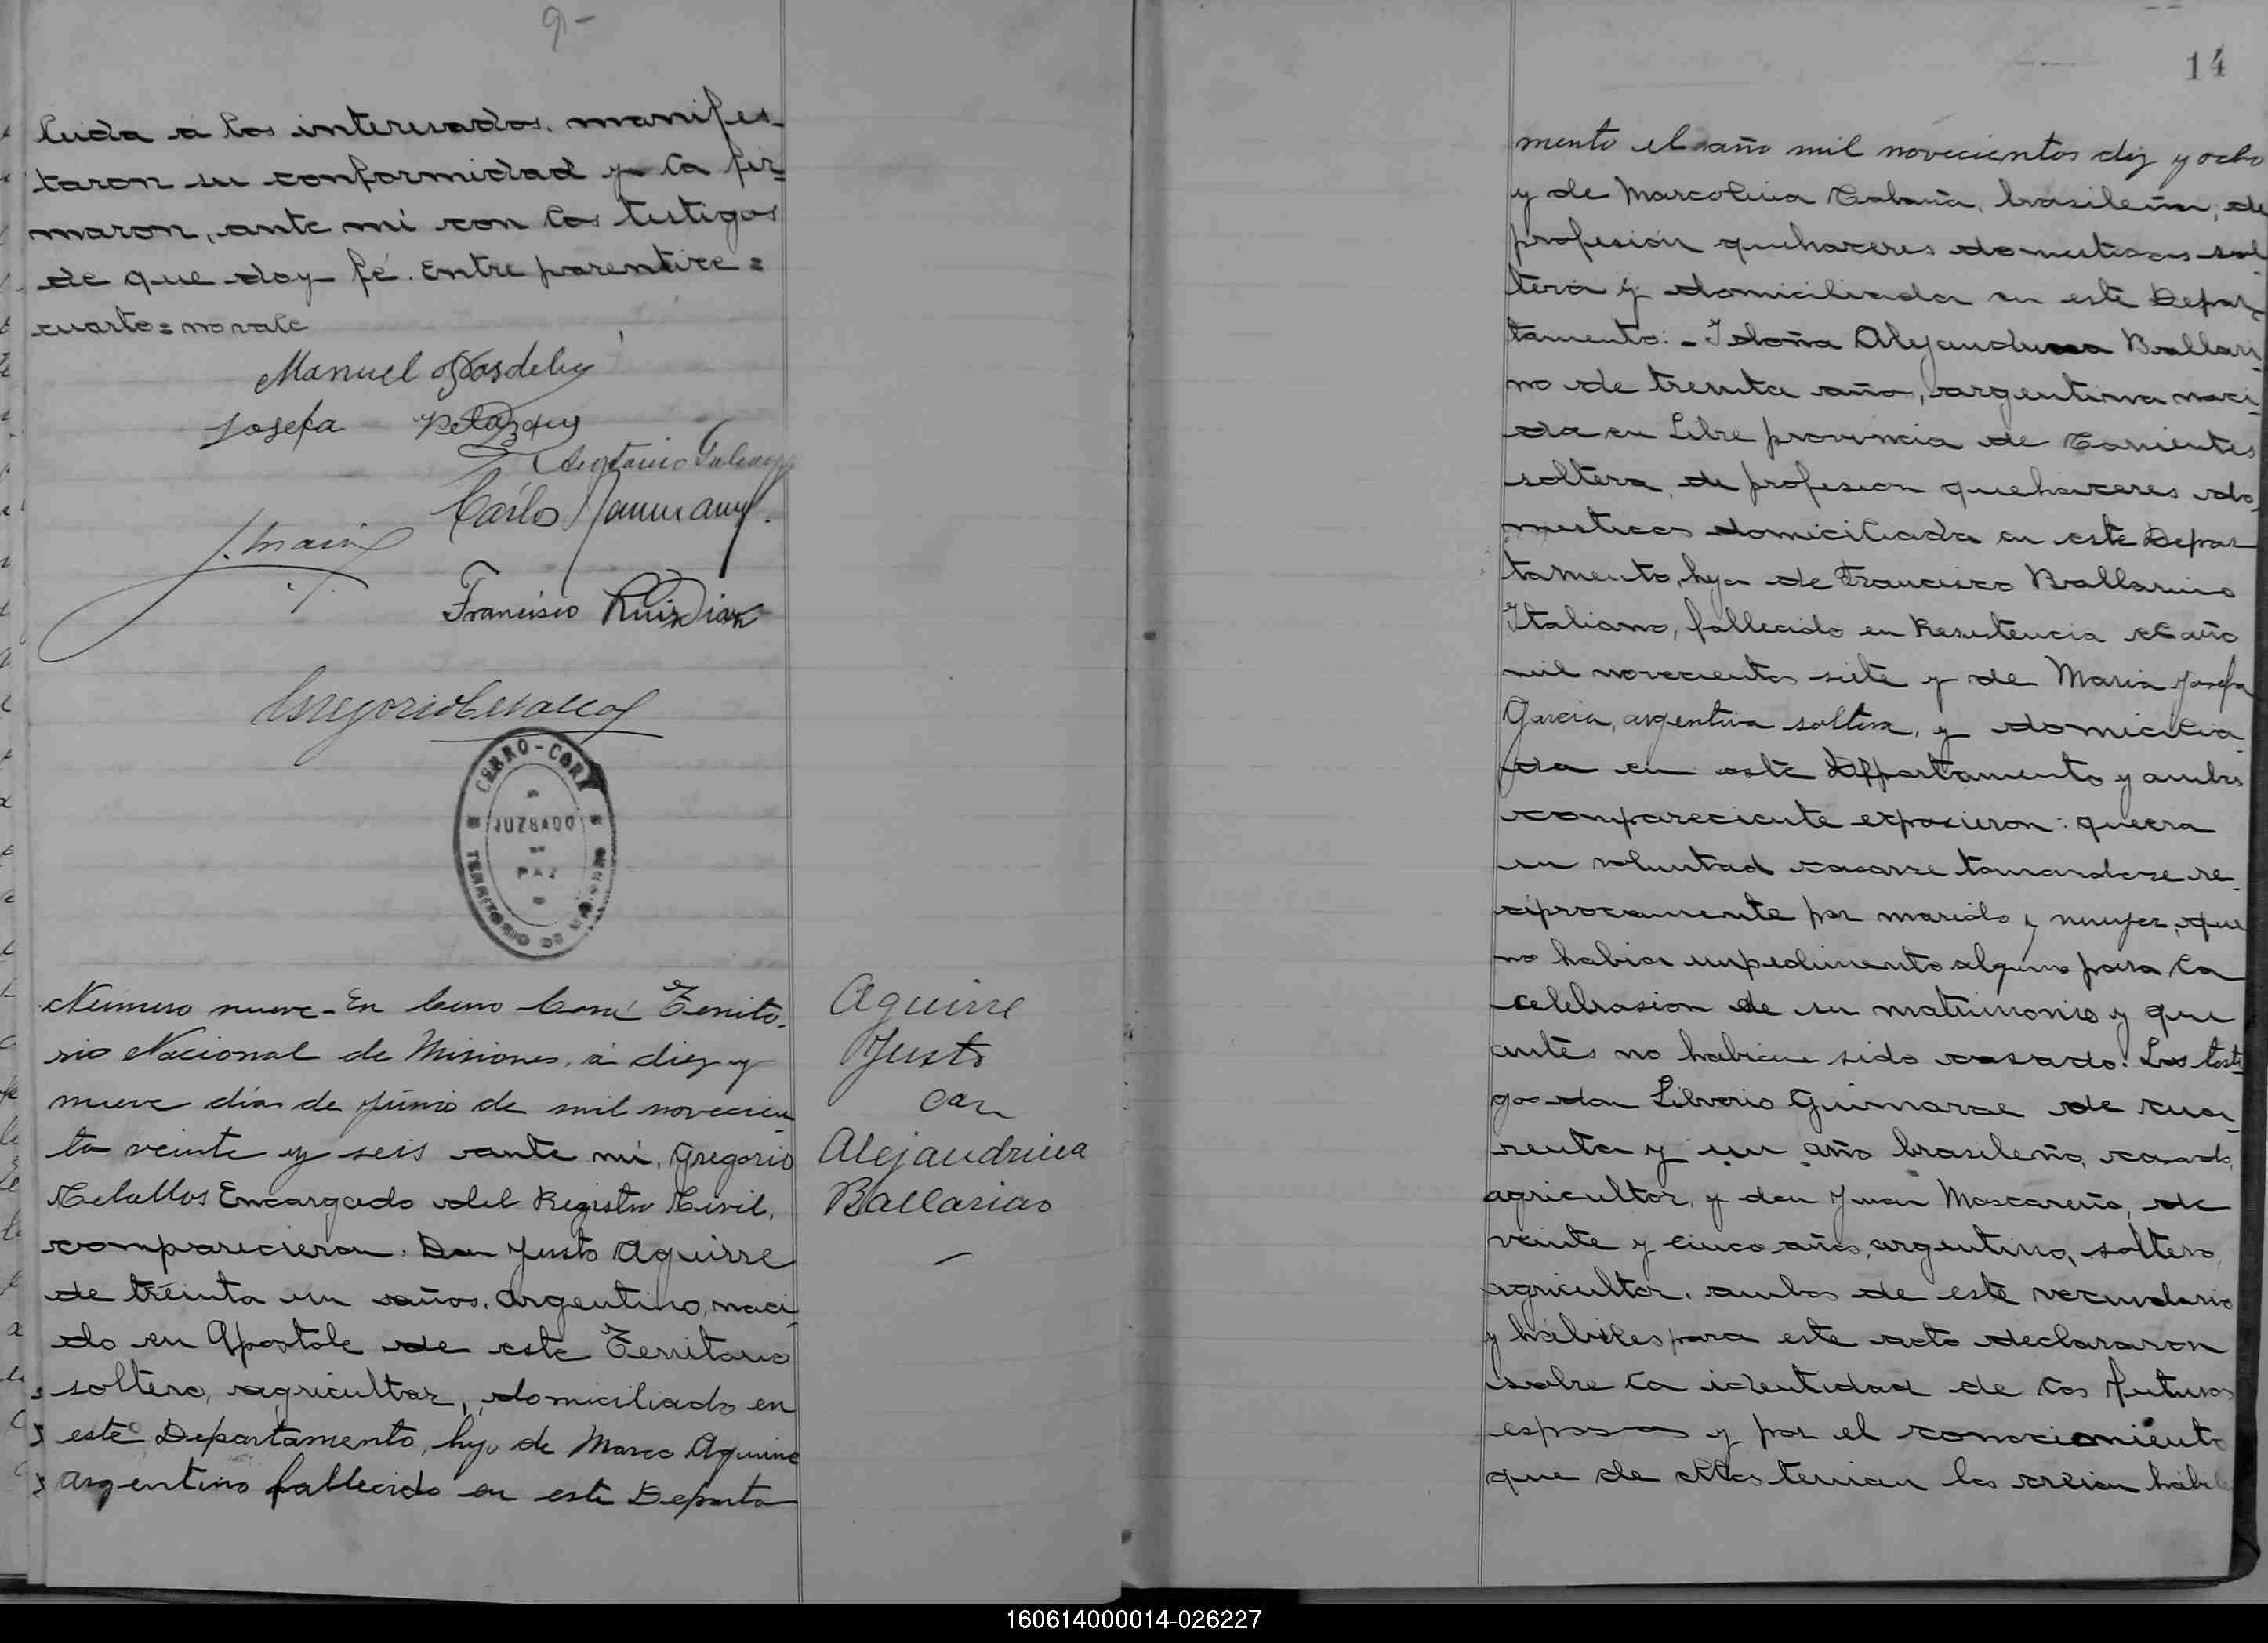 9-
leida á los interesados. manifes-
taron su conformidad y la fir=
maron, ante mí con los testigos
de que doy fé. Entre parentice=
cuarto=no vale
Manuel
Josefa
Antonio
Carlos
Francisco Ruiz Diaz
CERRO-CORÁ
JUZGADO
DE
PAZ
TERRITORIO DE MISIONES
Número nueve- En Cerro Corá Territo-
rio Nacional de Misiones, á diez y
nueve días de Junio de mil novecien-
to veinte y seis ante mi, Gregorio
Cevallos Encargado del Registro Civil,
comparecieron. Don Justo Aguirre
de treinta un años, Argentino, naci-
do en Apostole de este Territorio
soltero, agricultor, domiciliado en
este Departamento, hijo de Marco Aguirre
Argentino fallecido en este Departa
Aguirre
Justo
con
Alejandrina
Ballarino
14
mento el año mil novecientos diz y ocho
y de Marcolina, brasileña, de
profesión quehaceres domesticos sol-
tera y domiciliada en este Depar-
tamento:- I doña Alejandrina Ballari-
no de treinta año, argentina naci-
da en Libre provincia de Corrientes
soltera, de profesion quehaceres do-
mesticos domiciliada en este Depar
tamento, hija de Francisco Ballarino
Italiano, fallecido en Resistencia el año
mil novecientos siete y de Maria Josefa
Garcia, argentina soltera, y domicilia-
da en este Deppartamento y ambos
compareciente expusieron: que era
su voluntad casarse tomandose re-
ciprocamente por marido y mujer, que
no habia impedimento alguno para la
celebrasion de su matrimonio y que
antes no habian sido casado: Los testi-
gos don Liborio Guimarae de cua-
renta y un año brasileño, casado,
agricultor, y don Juan Mascareño, de
veinte y cinco años, argentino, soltero,
agricultor, ambos de este vecindario
y hábiles para este acto declararon
sobre la identidad de los futuros
esposos y por el conocimiento
que de ellos tenian los creian habil
160614000014-026227